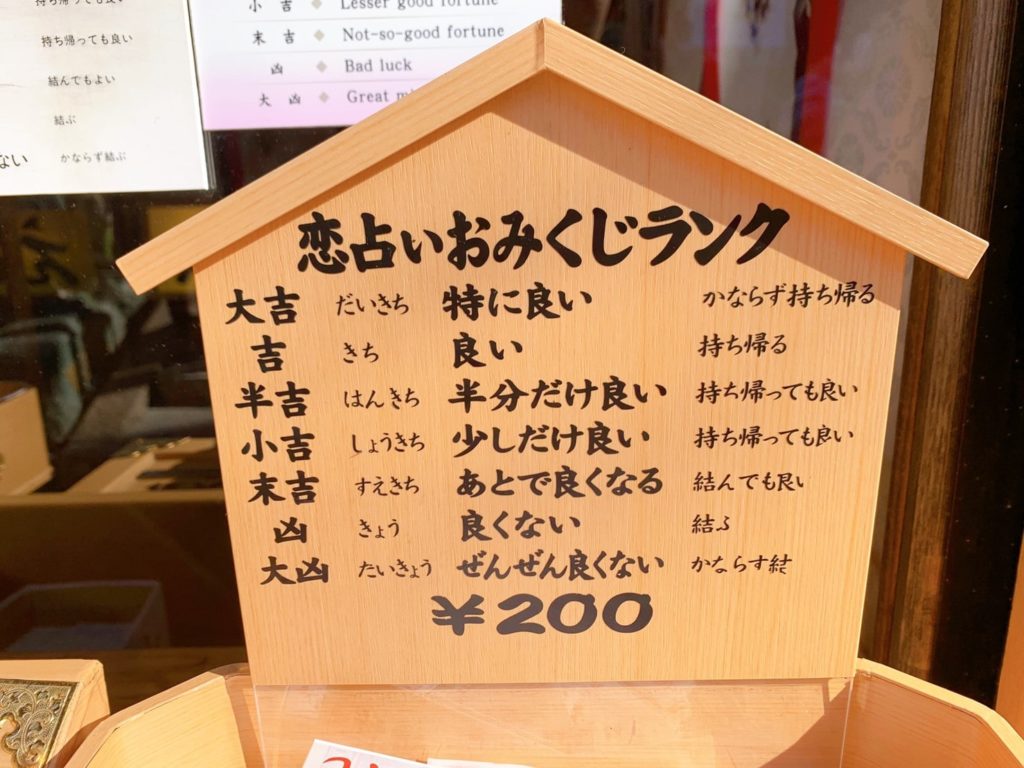 持ち帰っても良い
持ち帰っても良い
結んでもよい
結ぶ
ない かならず結ぶ
小吉 ◆ Lesser good fortune
末吉 ◆ Not-so-good fortune
凶 ◆ Bad luck
大凶 ◆ Great
恋占いおみくじランク
大吉 だいきち 特に良い かならず持ち帰る
吉 きち 良い 持ち帰る
半吉 はんきち 半分だけ良い 持ち帰っても良い
小吉 しょうきち 少しだけ良い 持ち帰っても良い
末吉 すえきち あとで良くなる 結んでも良い
凶 きょう 良くない 結ふ
大凶 たいきょう ぜんぜん良くない かならす結
¥200